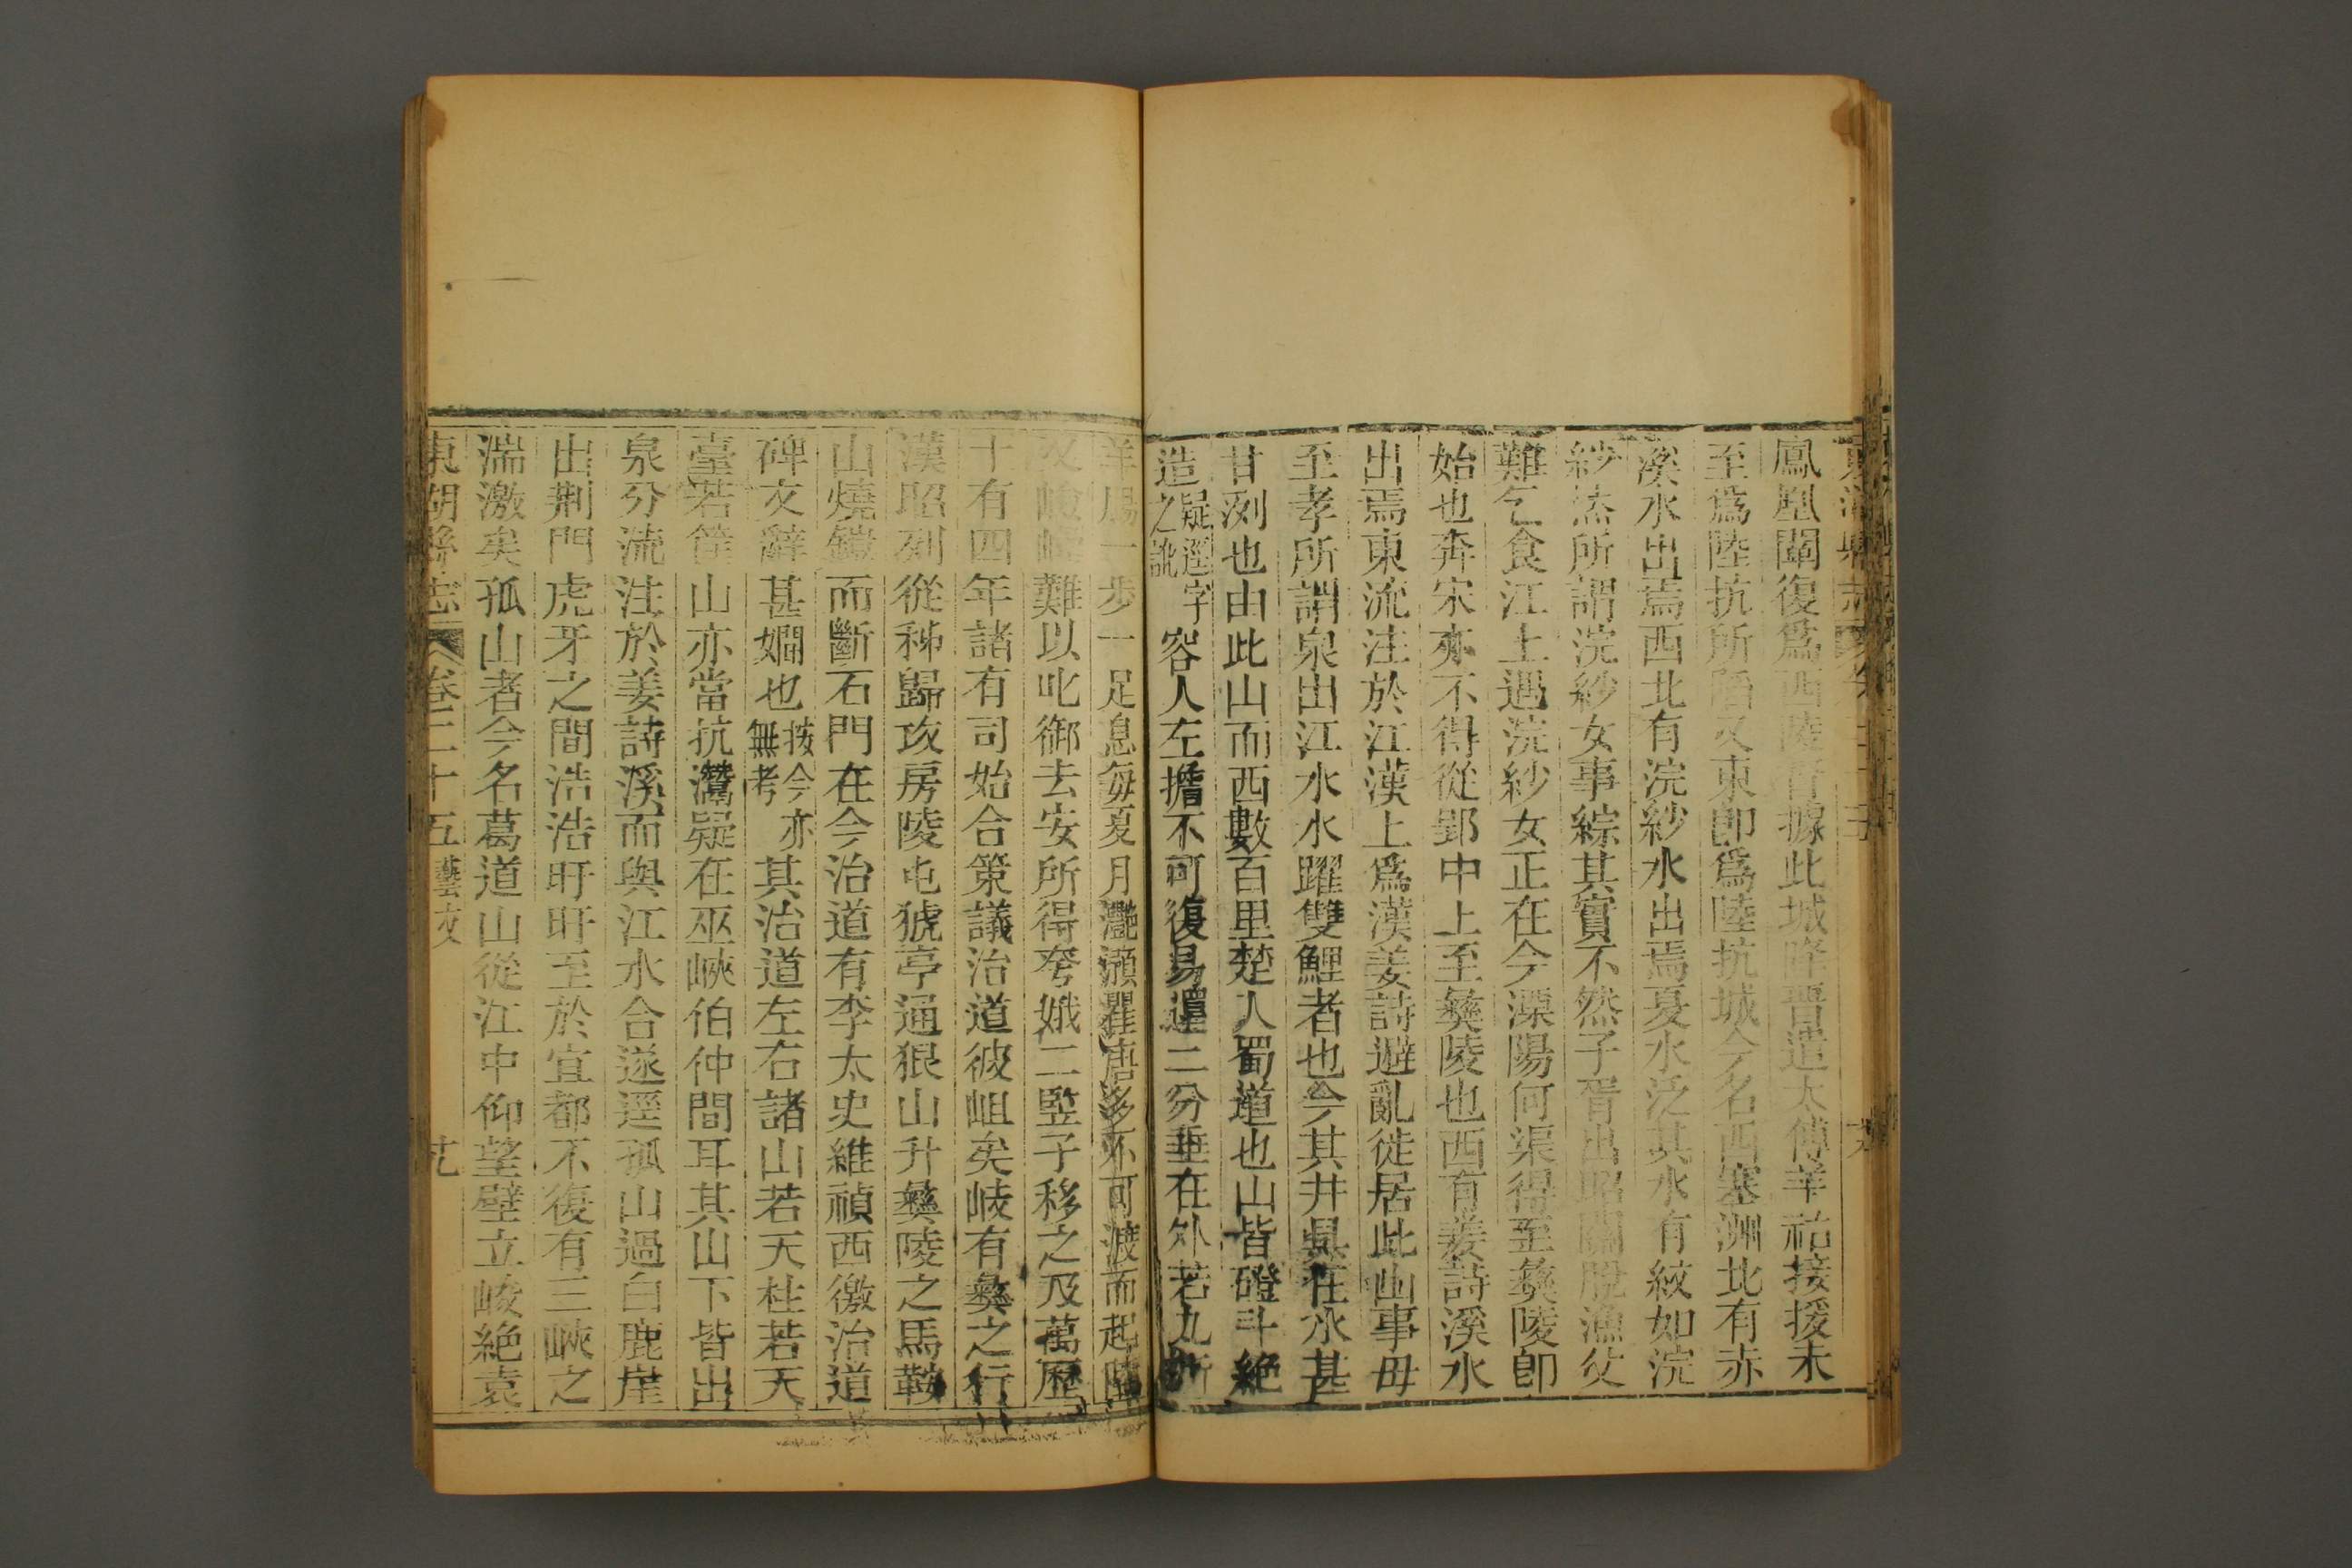 鳳凰關復爲西陵晉據此城降晉遣太傅羊祜接援未
至爲陸抗所陷又東卽爲陸抗城今名西塞洲北有赤
溪水出焉西北有浣紗水出焉夏水泛其水有紋如浣
紗然所謂浣紗女事綜其實不然子胥出昭關脫漁父
難乞食江上遇浣紗女正在今溧陽何渠得至彝陵卽
始也奔宋亦不得從郢中上至彝陵也西有姜詩溪水
出焉東流注於江漢上爲漢姜詩避亂徙居此山事毋
至孝所謂泉出江水水躍雙鯉者也今其井具在水甚
甘洌也由此山而西數百里楚人蜀道也山皆磴斗絶
造疑逕字之訛容人左擔不可復易逕二分垂在外若九
羊腸一步一足息每夏月灩澦瞿唐涔亦可渡而起陸
又嶮巇難以叱御去安所得夸娥二豎子移之及萬歷
十有四年諸有司始合策議治道彼岨矣岐有彝之行
漢昭列從秭歸攻房陵屯猇亭通狠山升彝陵之馬鞍
山燒鎧而斷石門在今治道有李太史維禎西徼治道
碑文辭甚嫺也按今亦無考其治道左右諸山若天柱若天
臺若筐山亦當抗灊疑在巫峽伯仲間耳其山下皆出
泉分流注於姜詩溪而與江水合遂逕孤山過白鹿崖
出荆門虎牙之間浩浩旴旴至於宜都不復有三峽之
湍激矣孤山者今名葛道山從江中仰望壁立峻絶袁
東湖縣志 卷二十五 藝文